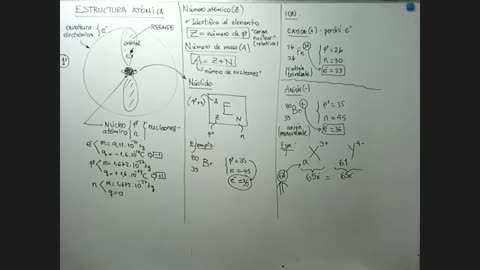 ESTRUCTURA ATÓMICA
envoltura
electrónica
{ e⁻
REEMPE
orbital
Núcleo
atómico
{ p⁺
n
} nucleones
e⁻ { m = 9,11·10⁻³¹ kg
q = -1,6·10⁻¹⁹ C (-1)
p⁺ { m = 1,672·10⁻²⁷ kg
q = +1,6·10⁻¹⁹ C (+1)
n { m = 1,675·10⁻²⁷ kg
q = 0
Número atómico (Z)
✓ Identifica al elemento
Z = número de p⁺
"carga
nuclear"
(relativa)
Número de masa (A)
A = Z + N
número de nucleones
Núclido
(p⁺+n)
A
E
Z N
p⁺ n
Ejemplo:
80
35
Br
{ p⁺ = 35
n = 45
e⁻ = 35
IÓN
CATIÓN (+) - perdió e⁻
56
26
Fe
3+
{ p⁺ = 26
n = 30
e⁻ = 23
(catión
trivalente)
Anión (-)
80
35
Br
{ p⁺ = 35
n = 45
e⁻ = 36
(anión
monovalente)
Ejm:
X³⁺
Y⁴⁻
a
61
65e⁻ = 65e⁻